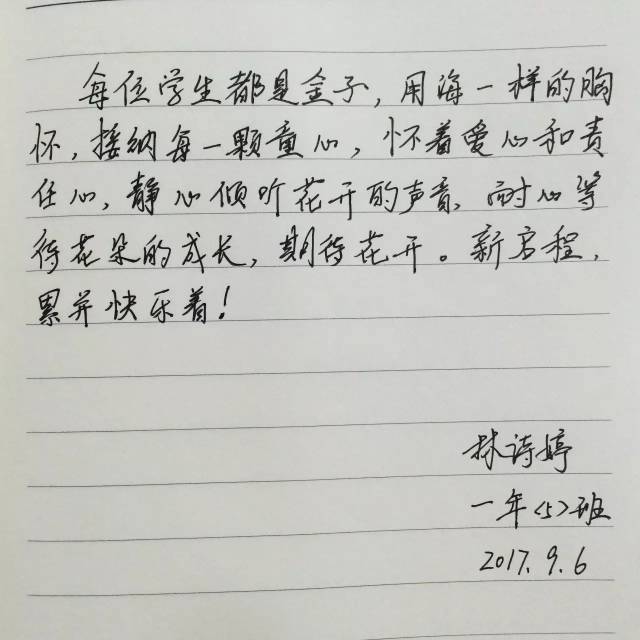 每位学生都是金子,用海一样的胸
怀,接纳每一颗童心,怀着爱心和责
任心,静心倾听花开的声音、耐心等
待花朵的成长,期待花开。新启程,
累并快乐着!
林诗婷
一年<5>班
2017.9.6